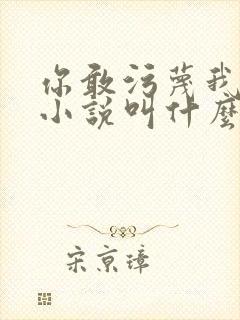 你敢污蔑我
小说叫什麼
宋京璋